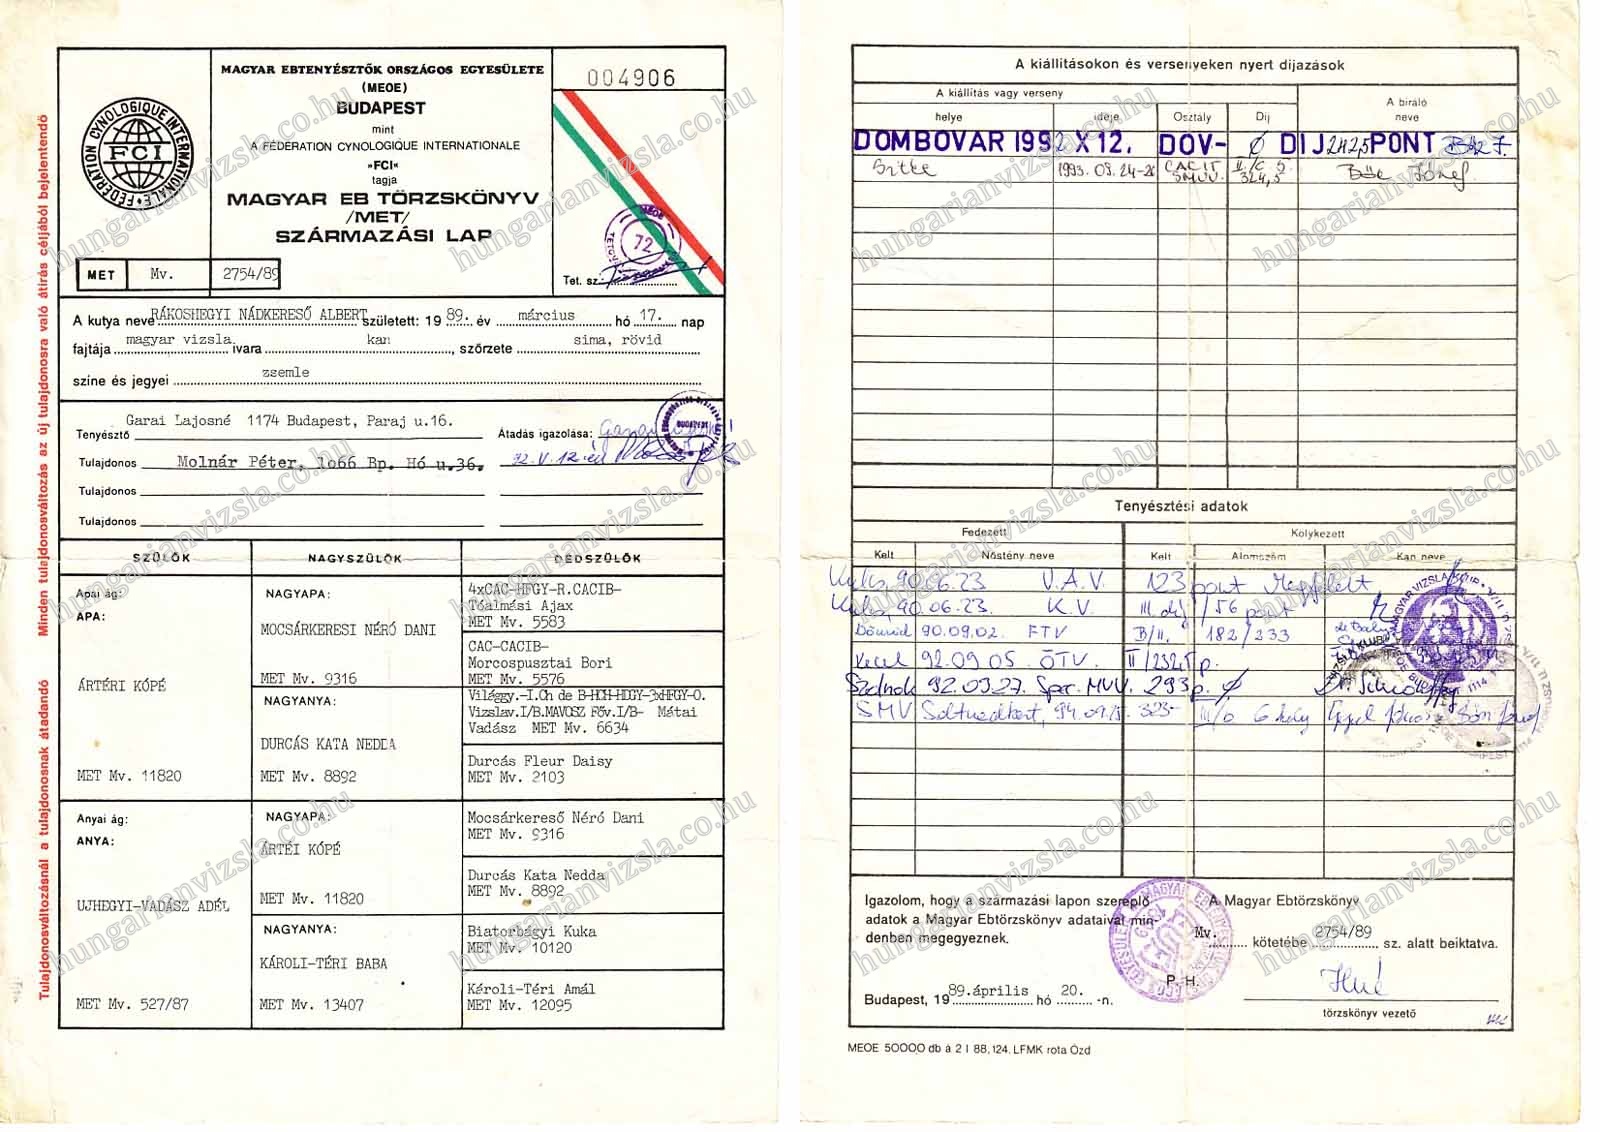 Minden tulajdonosváltozás az új tulajdonosra való átírás céljából bejelentendő
Tulajdonosváltozásnál a tulajdonosnak átadandó
FÉDÉRATION CYNOLOGIQUE INTERNATIONALE
FCI
MAGYAR EBTENYÉSZTŐK ORSZÁGOS EGYESÜLETE
(MEOE)
BUDAPEST
mint
A FÉDÉRATION CYNOLOGIQUE INTERNATIONALE
»FCI«
tagja
MAGYAR EB TÖRZSKÖNYV
/MET/
SZÁRMAZÁSI LAP
004906
MEOE
72
Tet. sz.
MET Mv. 2754/89
A kutya neve RÁKOSHEGYI NÁDKERESŐ ALBERT született: 1989. év március hó 17. nap
fajtája magyar vizsla ivara kan, szőrzete sima, rövid
színe és jegyei zsemle
Tenyésztő Garai Lajosné 1174 Budapest, Paraj u.16. Átadás igazolása:
Tulajdonos Molnár Péter, 1o66 Bp. Hó u.36. 92. V. 12-én
Tulajdonos
Tulajdonos
SZÜLŐK NAGYSZÜLŐK DÉDSZÜLŐK
Apai ág:
APA:
ÁRTÉRI KÓPÉ
MET Mv. 11820
NAGYAPA:
MOCSÁRKERESI NÉRÓ DANI
MET Mv. 9316
NAGYANYA:
DURCÁS KATA NEDDA
MET Mv. 8892
4xCAC-HFGY-R.CACIB-
Tóalmási Ajax
MET Mv. 5583
CAC-CACIB-
Morcospusztai Bori
MET Mv. 5576
Világgy.-I.Ch de B-HCH-HDGY-3xHFGY-O.
Vizslav.I/B.MAVOSZ Főv.I/B- Mátai
Vadász MET Mv. 6634
Durcás Fleur Daisy
MET Mv. 2103
Anyai ág:
ANYA:
UJHEGYI-VADÁSZ ADÉL
MET Mv. 527/87
NAGYAPA:
ÁRTÉI KÓPÉ
MET Mv. 11820
NAGYANYA:
KÁROLI-TÉRI BABA
MET Mv. 13407
Mocsárkereső Néró Dani
MET Mv. 9316
Durcás Kata Nedda
MET Mv. 8892
Biatorbágyi Kuka
MET Mv. 10120
Károli-Téri Amál
MET Mv. 12095
A kiállításokon és versenyeken nyert díjazások
A kiállítás vagy verseny
helye ideje Osztály Díj A bíráló neve
DOMBOVAR 1992 X 12. DOV- Ø DIJ 242,5 PONT
Sitke 1993. 09. 24-26 CACIT SMVV. II/C 5. 324,5 József
Tenyésztési adatok
Fedezett Kölykezett
Kelt Nőstény neve Kelt Alomszám Kan neve
90.06.23 V.A.V. 123 pont Megfelelt
90.06.23. K.V. III. díj /56 pont
90.09.02. FTV B/II. 182/233
Kecel 92.09.05. ÖTV. II/232,5 p.
Szolnok 92.09.27. Spec. MVV. 293 p. Ø
SMV 323- III/o 6 hely
Igazolom, hogy a származási lapon szereplő
adatok a Magyar Ebtörzskönyv adataival min-
denben megegyeznek.
A Magyar Ebtörzskönyv
Mv. kötetébe 2754/89 sz. alatt beiktatva.
P. H.
Budapest, 1989. április hó 20. -n.
törzskönyv vezető
MEOE 50000 db à 2 I 88, 124. LFMK rota Ózd
hungarianvizsla.co.hu